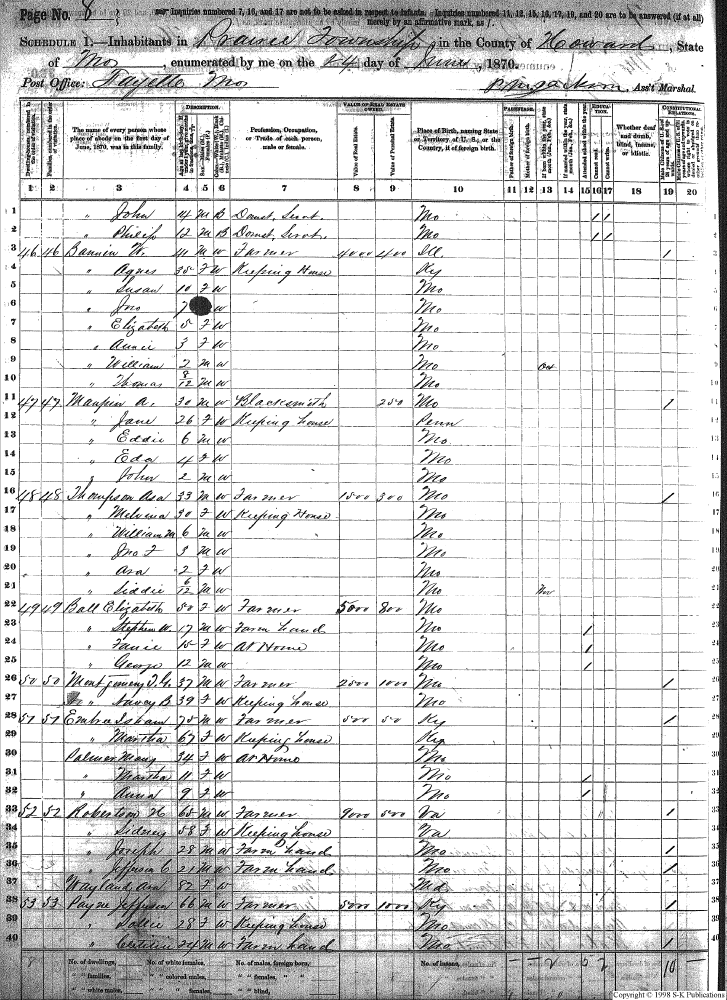 Page No. 8
Inquiries numbered 7, 16, and 17 are not to be asked in respect to infants. Inquiries numbered 11, 12, 15, 16, 17, 19, and 20 are to be answered (if at all) merely by an affirmative mark, as /.
SCHEDULE 1.—Inhabitants in Prairie Township, in the County of Howard, State
of Mo, enumerated by me on the 24 day of June, 1870.
Post Office: Fayette Mo Ass't Marshal.
DESCRIPTION. VALUE OF REAL ESTATE OWNED. PARENTAGE. EDUCATION. CONSTITUTIONAL RELATIONS.
The name of every person whose place of abode on the first day of June, 1870, was in this family.
Profession, Occupation, or Trade of each person, male or female.
Value of Real Estate.
Value of Personal Estate.
Place of Birth, naming State or Territory of U. S.; or the Country, if of foreign birth.
Father of foreign birth.
Mother of foreign birth.
Attended school within the year.
Cannot read.
Cannot write.
Whether deaf and dumb, blind, insane, or idiotic.
1 2 3 4 5 6 7 8 9 10 11 12 13 14 15 16 17 18 19 20
1 " John 14 M B Domst. Servt. Mo / /
2 " Philip 12 M B Domst. Servt. Mo / /
3 46 46 W. 41 M W Farmer 4000 400 Ill 1
4 " Agnes 35 F W Keeping House Ky
5 " Susan 10 F W Mo
6 " Jno 7 W Mo
7 " Elizabeth 5 F W Mo
8 " Annie 3 F W Mo
9 " William 2 M W Mo
10 " Thomas 8/12 M W Mo Oct
11 47 47 Maupin A. 30 M W Blacksmith 250 Mo 1
12 " Jane 26 F W Keeping house Penn
13 " Eddie 6 M W Mo
14 " Eda 4 F W Mo
15 " John 2 M W Mo
16 48 48 Thompson Asa 33 M W Farmer 1500 300 Mo 1
17 " Melvina 30 F W Keeping House Mo
18 " William M 6 M W Mo
19 " Jno F 3 M W Mo
20 " Ara 2 F W Mo
21 " Siddie 6/12 M W Mo Nov
22 49 49 Ball Elizabeth 50 F W Farmer 5000 800 Mo
23 " Stephen W. 17 M W Farm hand Mo /
24 " Fanie 15 F W At Home Mo /
25 " George 12 M W Mo /
26 50 50 Montgomery 37 M W Farmer 2500 1000 Mo 1
27 " Nancy B 39 F W Keeping house Mo
28 51 51 Embra Isham 75 M W Farmer 500 50 Ky 1
29 " Martha 67 F W Keeping house Ky
30 Palmer Mary 34 F W At Home Mo
31 " Martha 11 F W Mo /
32 " Anna 9 F W Mo /
33 52 52 Robertson H 65 M W Farmer 9000 500 Va 1
34 " Sidney 58 F W Keeping house Va
35 " Joseph 28 M W Farm hand Mo 1
36 " Jefferson C 21 M W Farm hand Mo 1
37 Wayland Ann 82 F W Md
38 53 53 Payne Jefferson 66 M W Farmer 5000 1000 Ky 1
39 " Sallie 28 F W Keeping house Mo
40 " 24 M W Farm hand Mo 1
No. of dwellings, No. of white females, No. of males, foreign born, No. of insane, 2 5 2 10
" " families, " " colored males, " " females, " "
" " white males, " " females, " " blind,
Copyright © 1998 S-K Publications